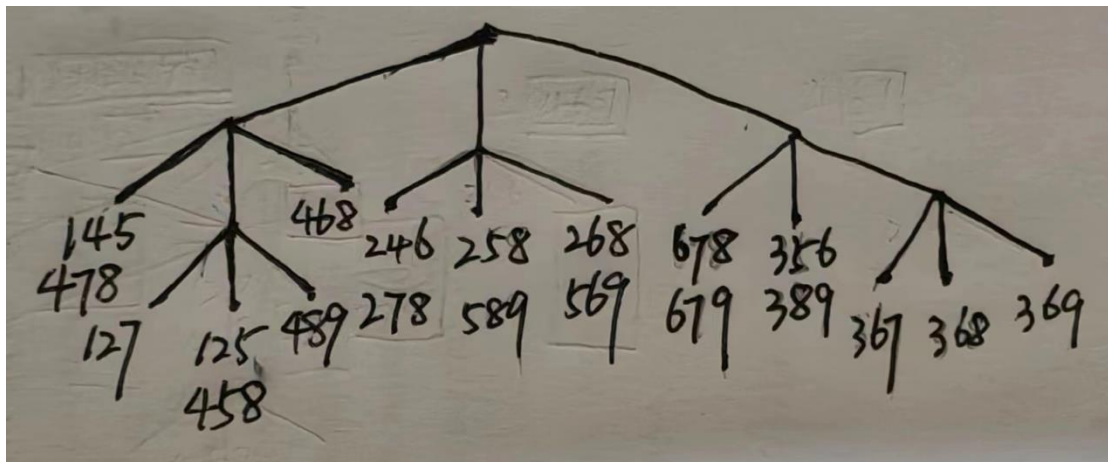 145
478
127
125
458
489
468
246
278
258
589
268
569
678
679
356
389
367
368
369